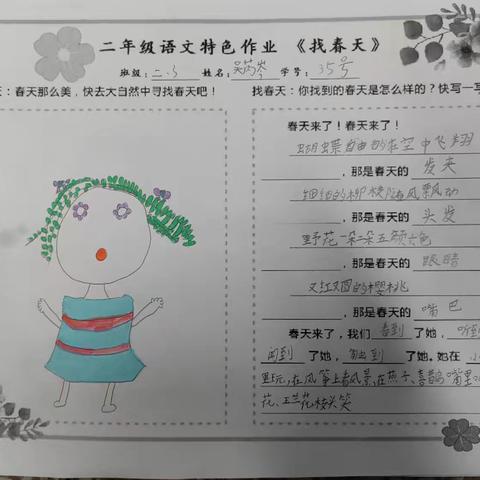 二年级语文特色作业 《找春天》
班级：二.3 姓名：吴芮岑 学号：35号
天：春天那么美，快去大自然中寻找春天吧！
找春天：你找到的春天是怎么样的？快写一写
春天来了！春天来了！
蝴蝶自由的在空中飞翔
，那是春天的 发夹
细细的柳枝随风飘动
，那是春天的 头发
野花一朵一朵五颜六色
，那是春天的 眼睛
又红又圆的樱桃
，那是春天的 嘴巴
春天来了，我们 看到 了她， 听到
闻到 了她， 触到 了她。她在
里玩，在风筝上看风景，在燕子、喜鹊 嘴里
花、玉兰花枝头笑